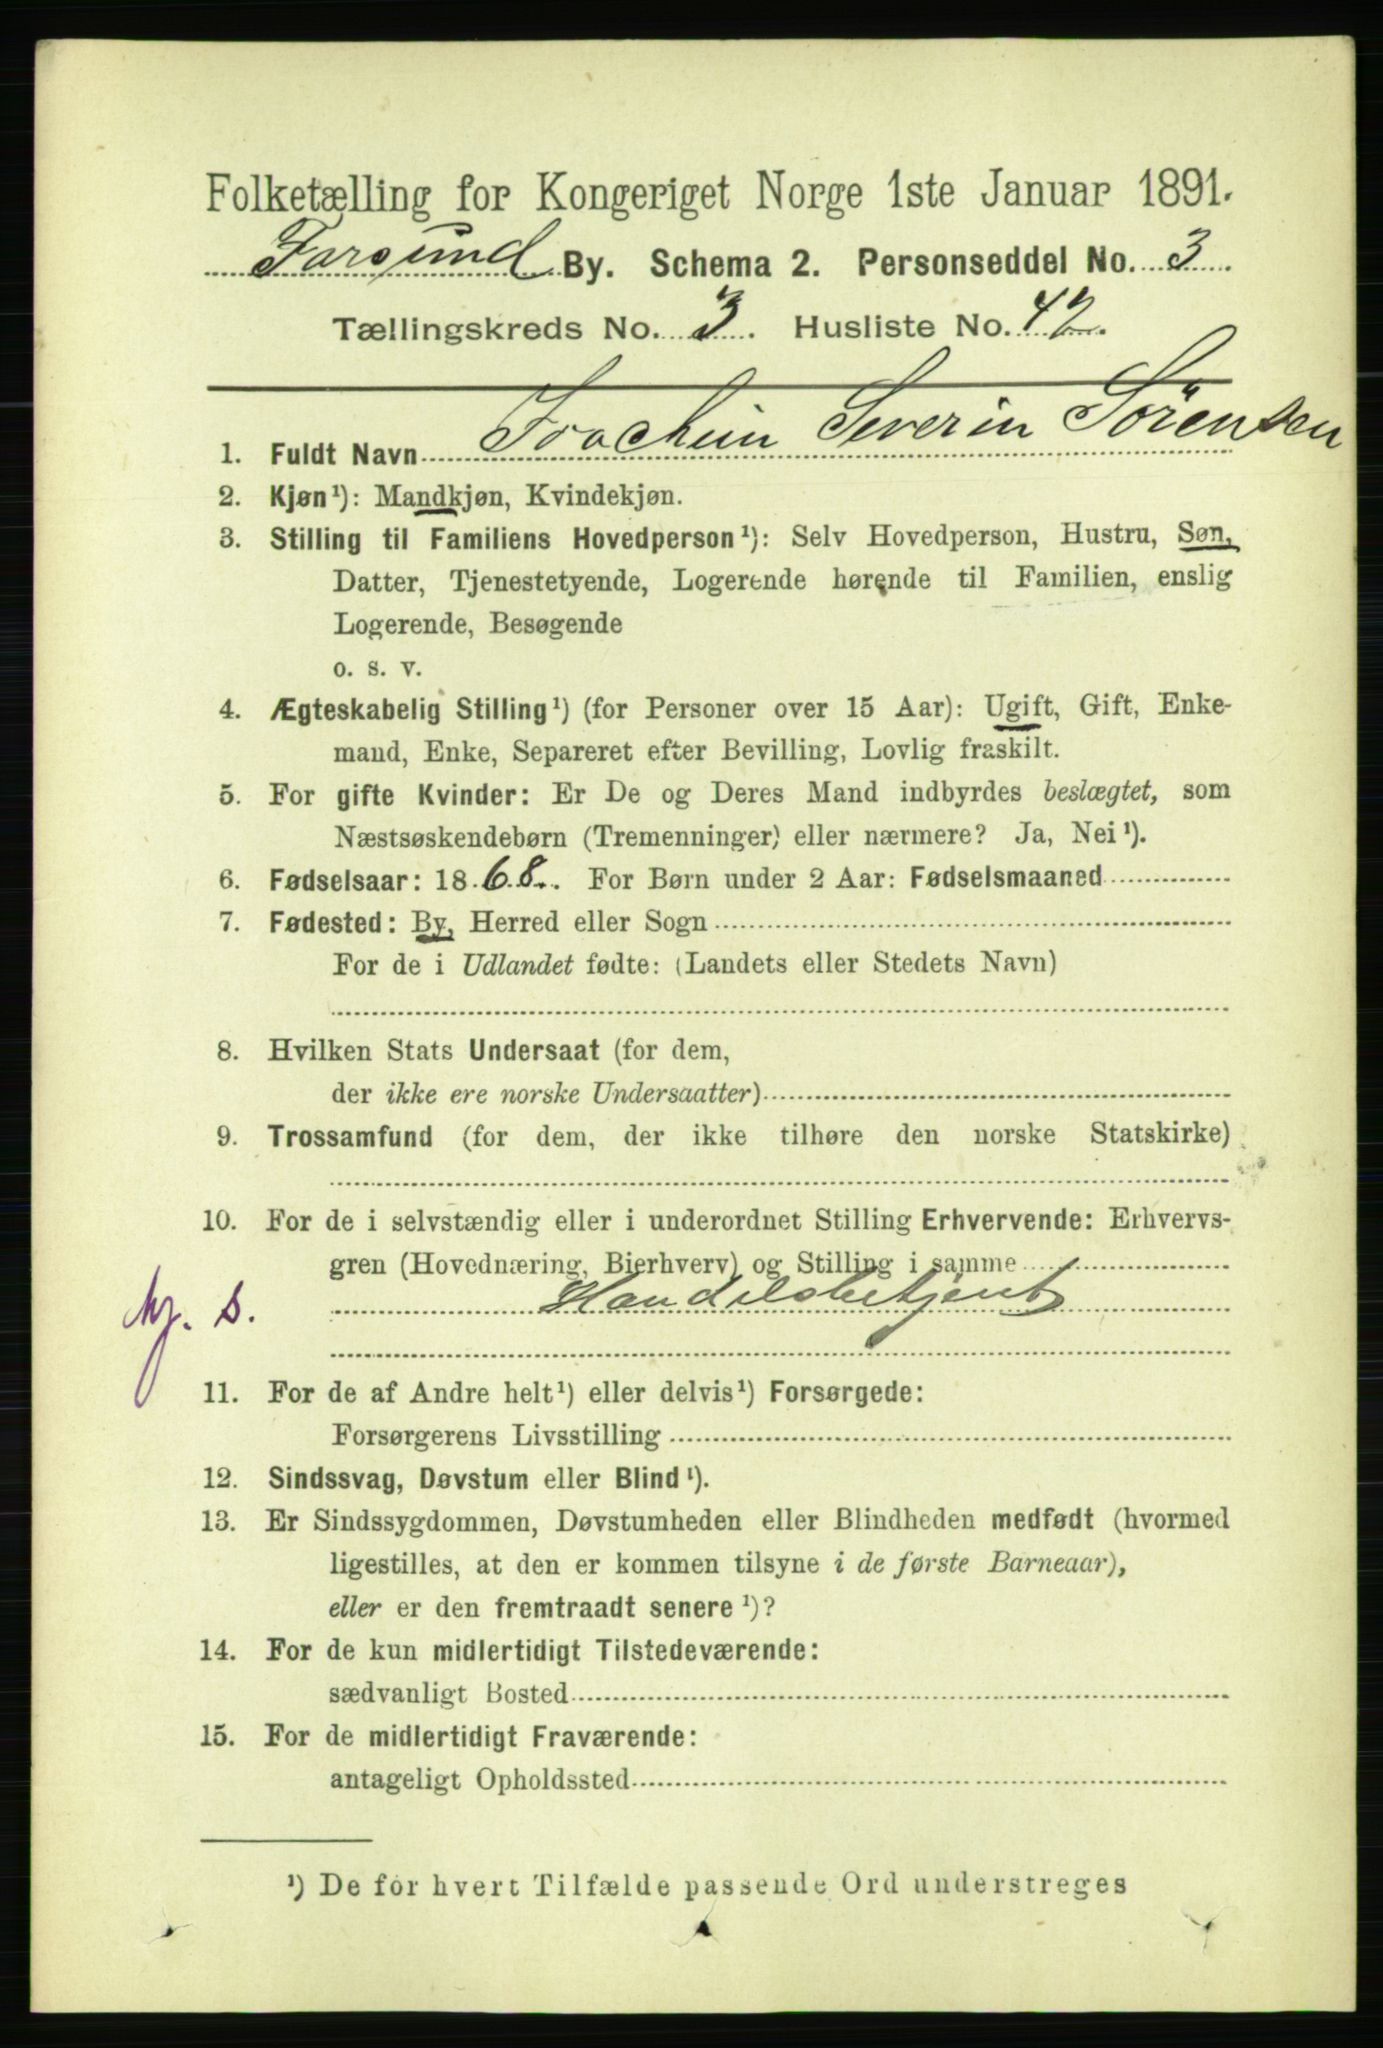 Folketælling for Kongeriget Norge 1ste Januar 1891.
Farsund By. Schema 2. Personseddel No. 3
Tællingskreds No. 3. Husliste No. 42.
1. Fuldt Navn Joachim Severin Sörensen
2. Kjøn¹): Mandkjøn, Kvindekjøn.
3. Stilling til Familiens Hovedperson¹): Selv Hovedperson, Hustru, Søn,
Datter, Tjenestetyende, Logerende hørende til Familien, enslig
Logerende, Besøgende
o. s. v.
4. Ægteskabelig Stilling¹) (for Personer over 15 Aar): Ugift, Gift, Enke-
mand, Enke, Separeret efter Bevilling, Lovlig fraskilt.
5. For gifte Kvinder: Er De og Deres Mand indbyrdes beslægtet, som
Næstsøskendebørn (Tremenninger) eller nærmere? Ja, Nei¹).
6. Fødselsaar: 1868. For Børn under 2 Aar: Fødselsmaaned
7. Fødested: By, Herred eller Sogn
For de i Udlandet fødte: (Landets eller Stedets Navn)
8. Hvilken Stats Undersaat (for dem,
der ikke ere norske Undersaatter)
9. Trossamfund (for dem, der ikke tilhøre den norske Statskirke)
10. For de i selvstændig eller i underordnet Stilling Erhvervende: Erhvervs-
gren (Hovednæring, Bierhverv) og Stilling i samme
Handelsbetjent
11. For de af Andre helt¹) eller delvis¹) Forsørgede:
Forsørgerens Livsstilling
12. Sindssvag, Døvstum eller Blind¹).
13. Er Sindssygdommen, Døvstumheden eller Blindheden medfødt (hvormed
ligestilles, at den er kommen tilsyne i de første Barneaar),
eller er den fremtraadt senere¹)?
14. For de kun midlertidigt Tilstedeværende:
sædvanligt Bosted
15. For de midlertidigt Fraværende:
antageligt Opholdssted
¹) De for hvert Tilfælde passende Ord understreges